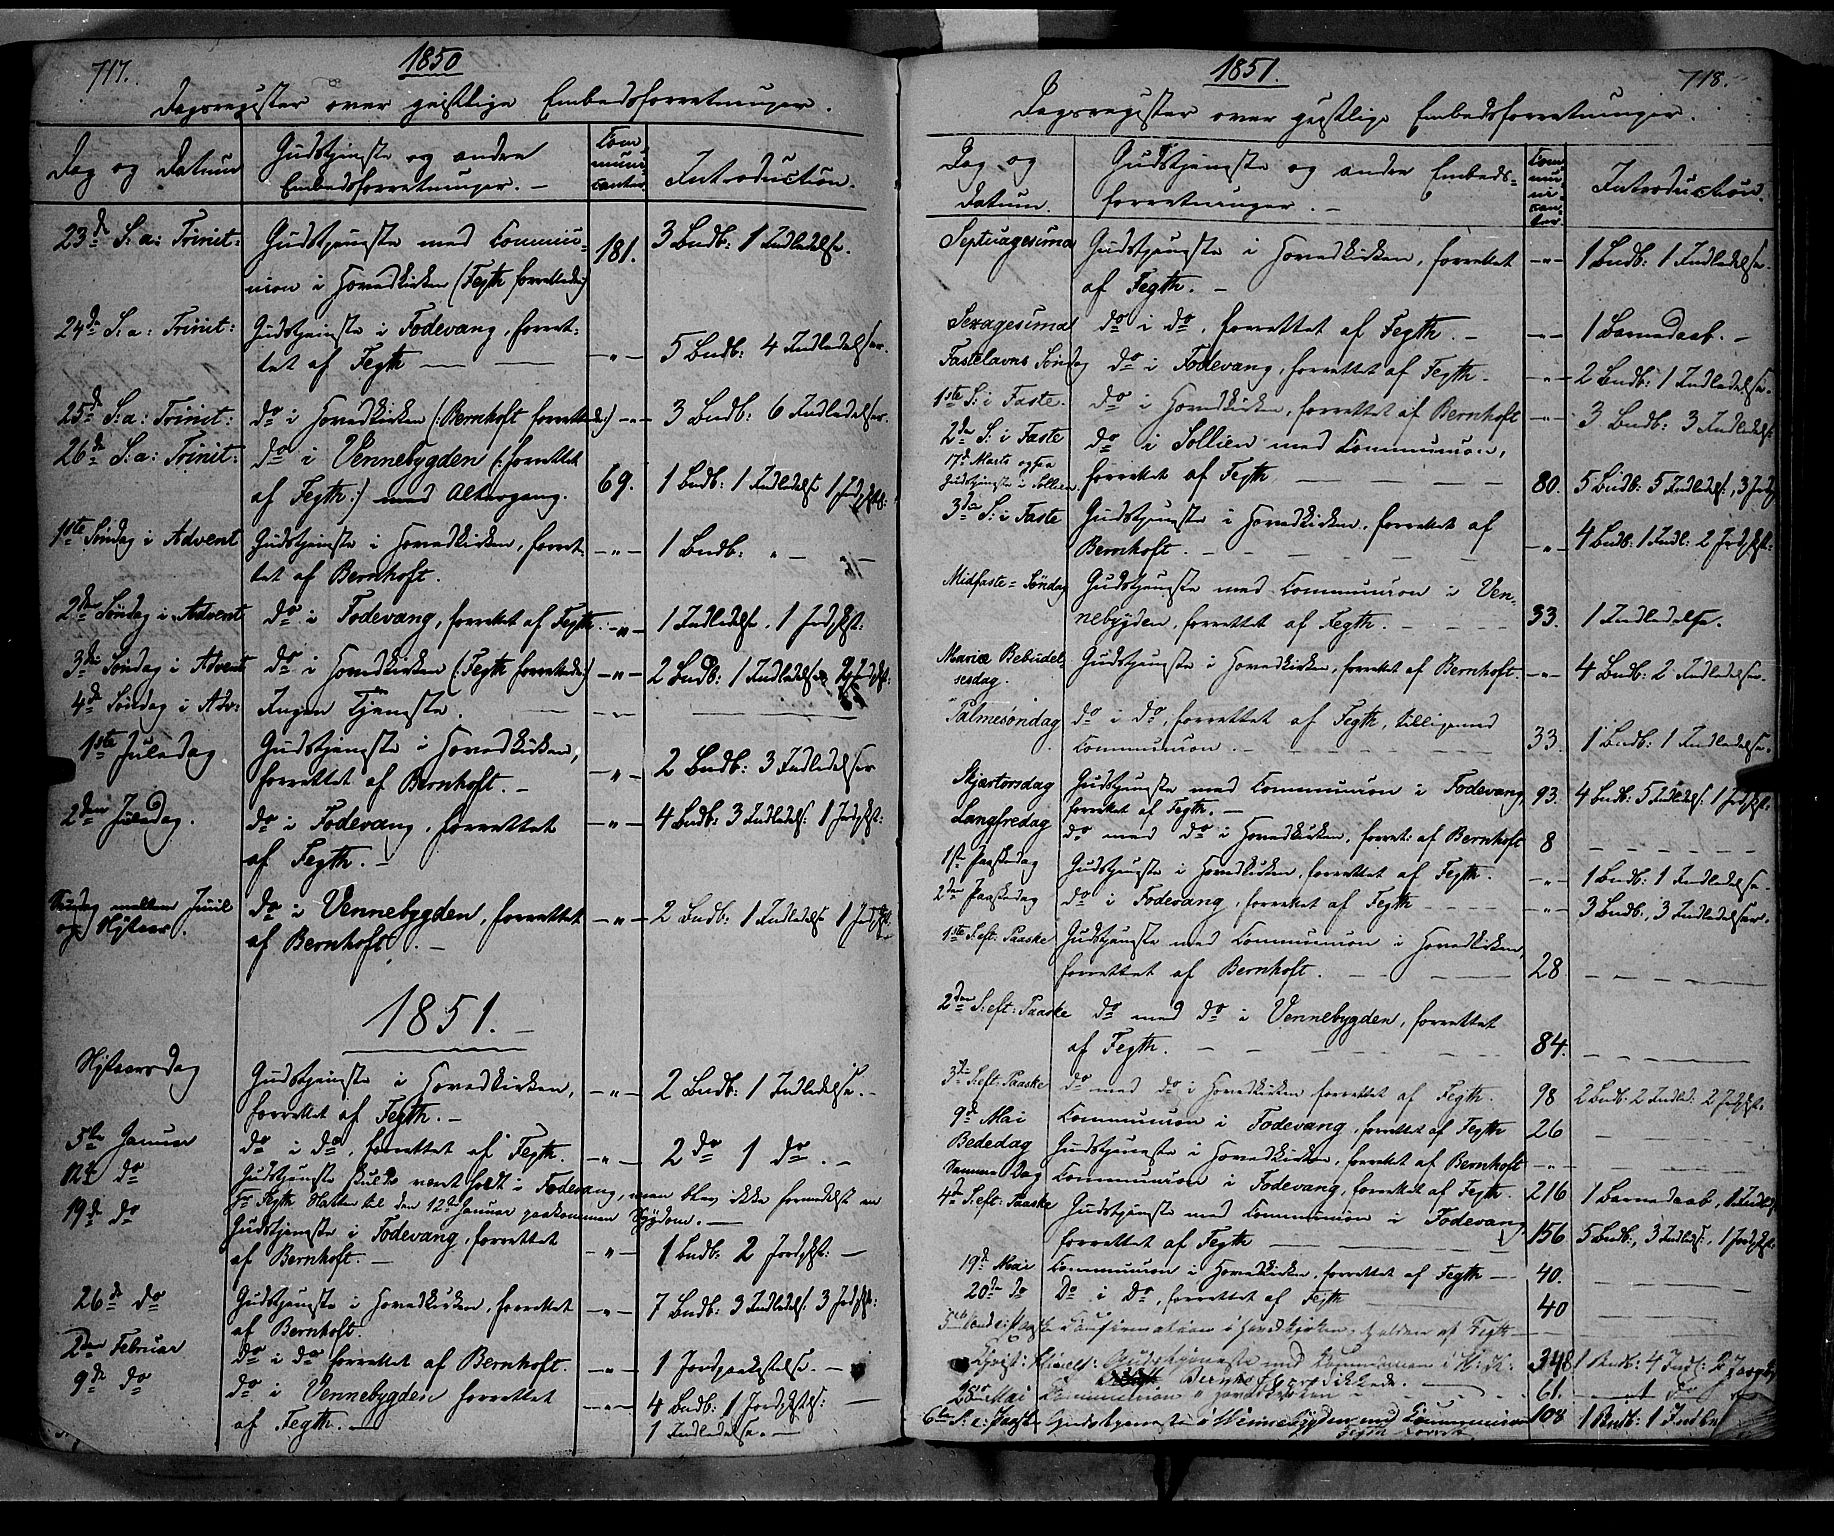 717.
1850
Dagsregister over geistlige Embedsforretninger.
Dag og Datum
Gudstjeneste og andre
Embedsforretninger. —
Com-
muni-
canter
Introduction.
23d S: a: Trinit:
Gudstjeneste med Commu-
nion i Hovedkirken (Fegth forrettede)
181.
3 Bndb: 1 Indledelse.
24de S: a: Trinit:
Gudstjeneste i Fodevang, forret-
tet af Fegth —
— „ —
5 Bndb: 4 Indledelser.
25d S: a: Trinit:
do i Hovedkirken (: Bernhoft forrettede:)
— „ —
3 Bndb: 6 Indledelser.
26de S: a: Trinit:
do i Vennebygden (: forrettet
af Fegth:) med Altergang.
69.
1 Bndb: 1 Indledelse 1 Jordpkst:
1ste Søndag i Advent
Gudstjeneste i Hovedkirken, forret-
tet af Bernhoft.
— „ —
1 Bndb: „ — —
2den Søndag i Advent
do i Fodevang, forrettet af Fegth.
— „ —
1 Indledelse, 1 Jordpkst:
3die Søndag i Advent
do i Hovedkirken (: Fegth forrettede:)
— „ —
2 Bndb: 1 Indledelse 2 Jordpkst:
4de Søndag i Adv:
Ingen Tjeneste.
1ste Juledag
Gudstjeneste i Hovedkirken,
forrettet af Bernhoft. —
— „ —
2 Bndb: 3 Indledelser
2den Juledag.
do i Fodevang, forrettet
af Fegth. —
— „ —
4 Bndb: 3 Indledels: 1 Jordpkst:
Søndag mellem Juul
og Nytaar.
do i Vennebygden, forrettet
af Bernhoft. —
— „ —
2 Bndb: 1 Indledelse 1 Jordpkst:
1851. —
Nytaarsdag
Gudstjeneste i Hovedkirken,
forrettet af Fegth. —
— „ —
2 Bndb: 1 Indledelse. —
5te Januar
do i do, forrettet af Fegth.
— „ —
2 do 1 do. —
12te do
Gudstjeneste skulde været holdt i Fodevang, men blev ikke formedelst en
Hr Fegth Natten til den 12te Januar paakommen Sygdom. —
19de do
Gudstjeneste i Fodevang, forrettet
af Bernhoft. —
— „ —
1 Bndb: 2 Jordpkst: —
26de do
Gudstjeneste i Hovedkirken, forrettet
af Bernhoft.
— „ —
7 Bndb: 3 Indledels: 3 Jordpkst:
2den Februar
do i do forrettet af Bernhoft.
— „ —
1 Jordpaakastelse. —
9de do
do i Vennebygden forrettet
af Fegth. —
— „ —
4 Bndb: 1 Jordpkst: —
1 Indledelse. —
1851.
718.
Dagsregister over geistlige Embedsforretninger.
Dag og
Datum.
Gudstjeneste og andre Embeds-
forretninger. —
Com-
mu-
ni-
can-
ter
Introduction.
Septuagesima
Gudstjeneste i Hovedkirken, forrettet
af Fegth. —
— „ —
1 Bndb: 1 Indledelse.
Sexagesima
do i do, forrettet af Fegth. —
— „ —
1 Barnedaab. —
Fastelavns Søndag
do i Fodevang, forrettet af Fegth.
— „ —
2 Bndb: 1 Indledelse.
1ste S: i Faste.
do i Hovedkirken, forrettet af Bernhoft
— „ —
3 Bndb: 3 Indledels:
2den S: i Faste
do i Sollien med Communion,
17de Marts ogsaa
Gudstjeneste i Sollien
forrettet af Fegth
80.
5 Bndb: 5 Indledels:, 3 Jordp
3die S: i Faste
Gudstjeneste i Hovedkirken, forrettet af
Bernhoft.
— „ —
4 Bndb: 1 Indl: 2 Jordpkst:
Midfaste-Søndag
Gudstjeneste med Communion i Ven-
nebygden, forrettet af Fegth.
33.
1 Indledelse.
Mariæ Bebudel-
sesdag.
Gudstjeneste i Hovedkirken, forrettet af Bernhoft.
— „ —
4 Bndb: 2 Indledelser.
Palmesøndag
do i do, forrettet af Fegth, tilligemed
Communion. —
33.
1 Bndb: 1 Indledelse.
Skjærtorsdag
Gudstjeneste med Communion i Fodevang,
forrettet af Fegth. —
93.
4 Bndb: 5 Indledels: 1 Jordpkst:
Langfredag
do med do i Hovedkirken, forret: af Bernhoft
8
1ste Paaskedag
Gudstjeneste i Hovedkirken, forrettet af Fegth.
— „ —
1 Bndb: 1 Indledelse.
2den Paaskedag
do i Fodevang, forrettet af Fegth
— „ —
3 Bndb:, 3 Indledelser.
1ste S: eft: Paaske
Gudstjeneste med Communion i Hovedkirken,
forrettet af Bernhoft.
28.
2den S: eft: Paaske
do med do i Vennebygden, forrettet
af Fegth.
84.
3die S: eft: Paaske
do med do i Hovedkirken forrettet af Fegth.
98
2 Bndb: 2 Indled: 2 Jordpkst:
9de Mai
Communion i Fodevang, forrettet af Fegth
26
Bededag
Gudstjeneste i Hovedkirken, forrettet af Bernhoft
— „ —
Samme Dag
Communion i Fodevang, forrettet af Fegth.
216
1 Barnedaab, 1 Indleds
4de S: eft: Paaske
Gudstjeneste med Communion i Fodevang
forrettet af Fegth
156
5 Bndb:, 3 Indleds:, 1 Jordpkst:
19de Mai
Communion i Hovedkirken, forrettet af Fegth
40.
20de do
Do i Do, forrettet af Fegth
40
5te Sønd: e: Paaske
Confirmation i Hovedkirken, holden af Fegth
Christi Himmelf:
Gudstjeneste med Communion i H. K.:
348
1 Bndb: 4 Indl: 2 Jordpk
Bernhoft prædikede.
Mai
Communion i Hovedkirken
61.
6te S: e: Paaske
Gudstjeneste i Vennebygden med Communion
Fegth forrett:
108
1 Bndb: 1 Indle